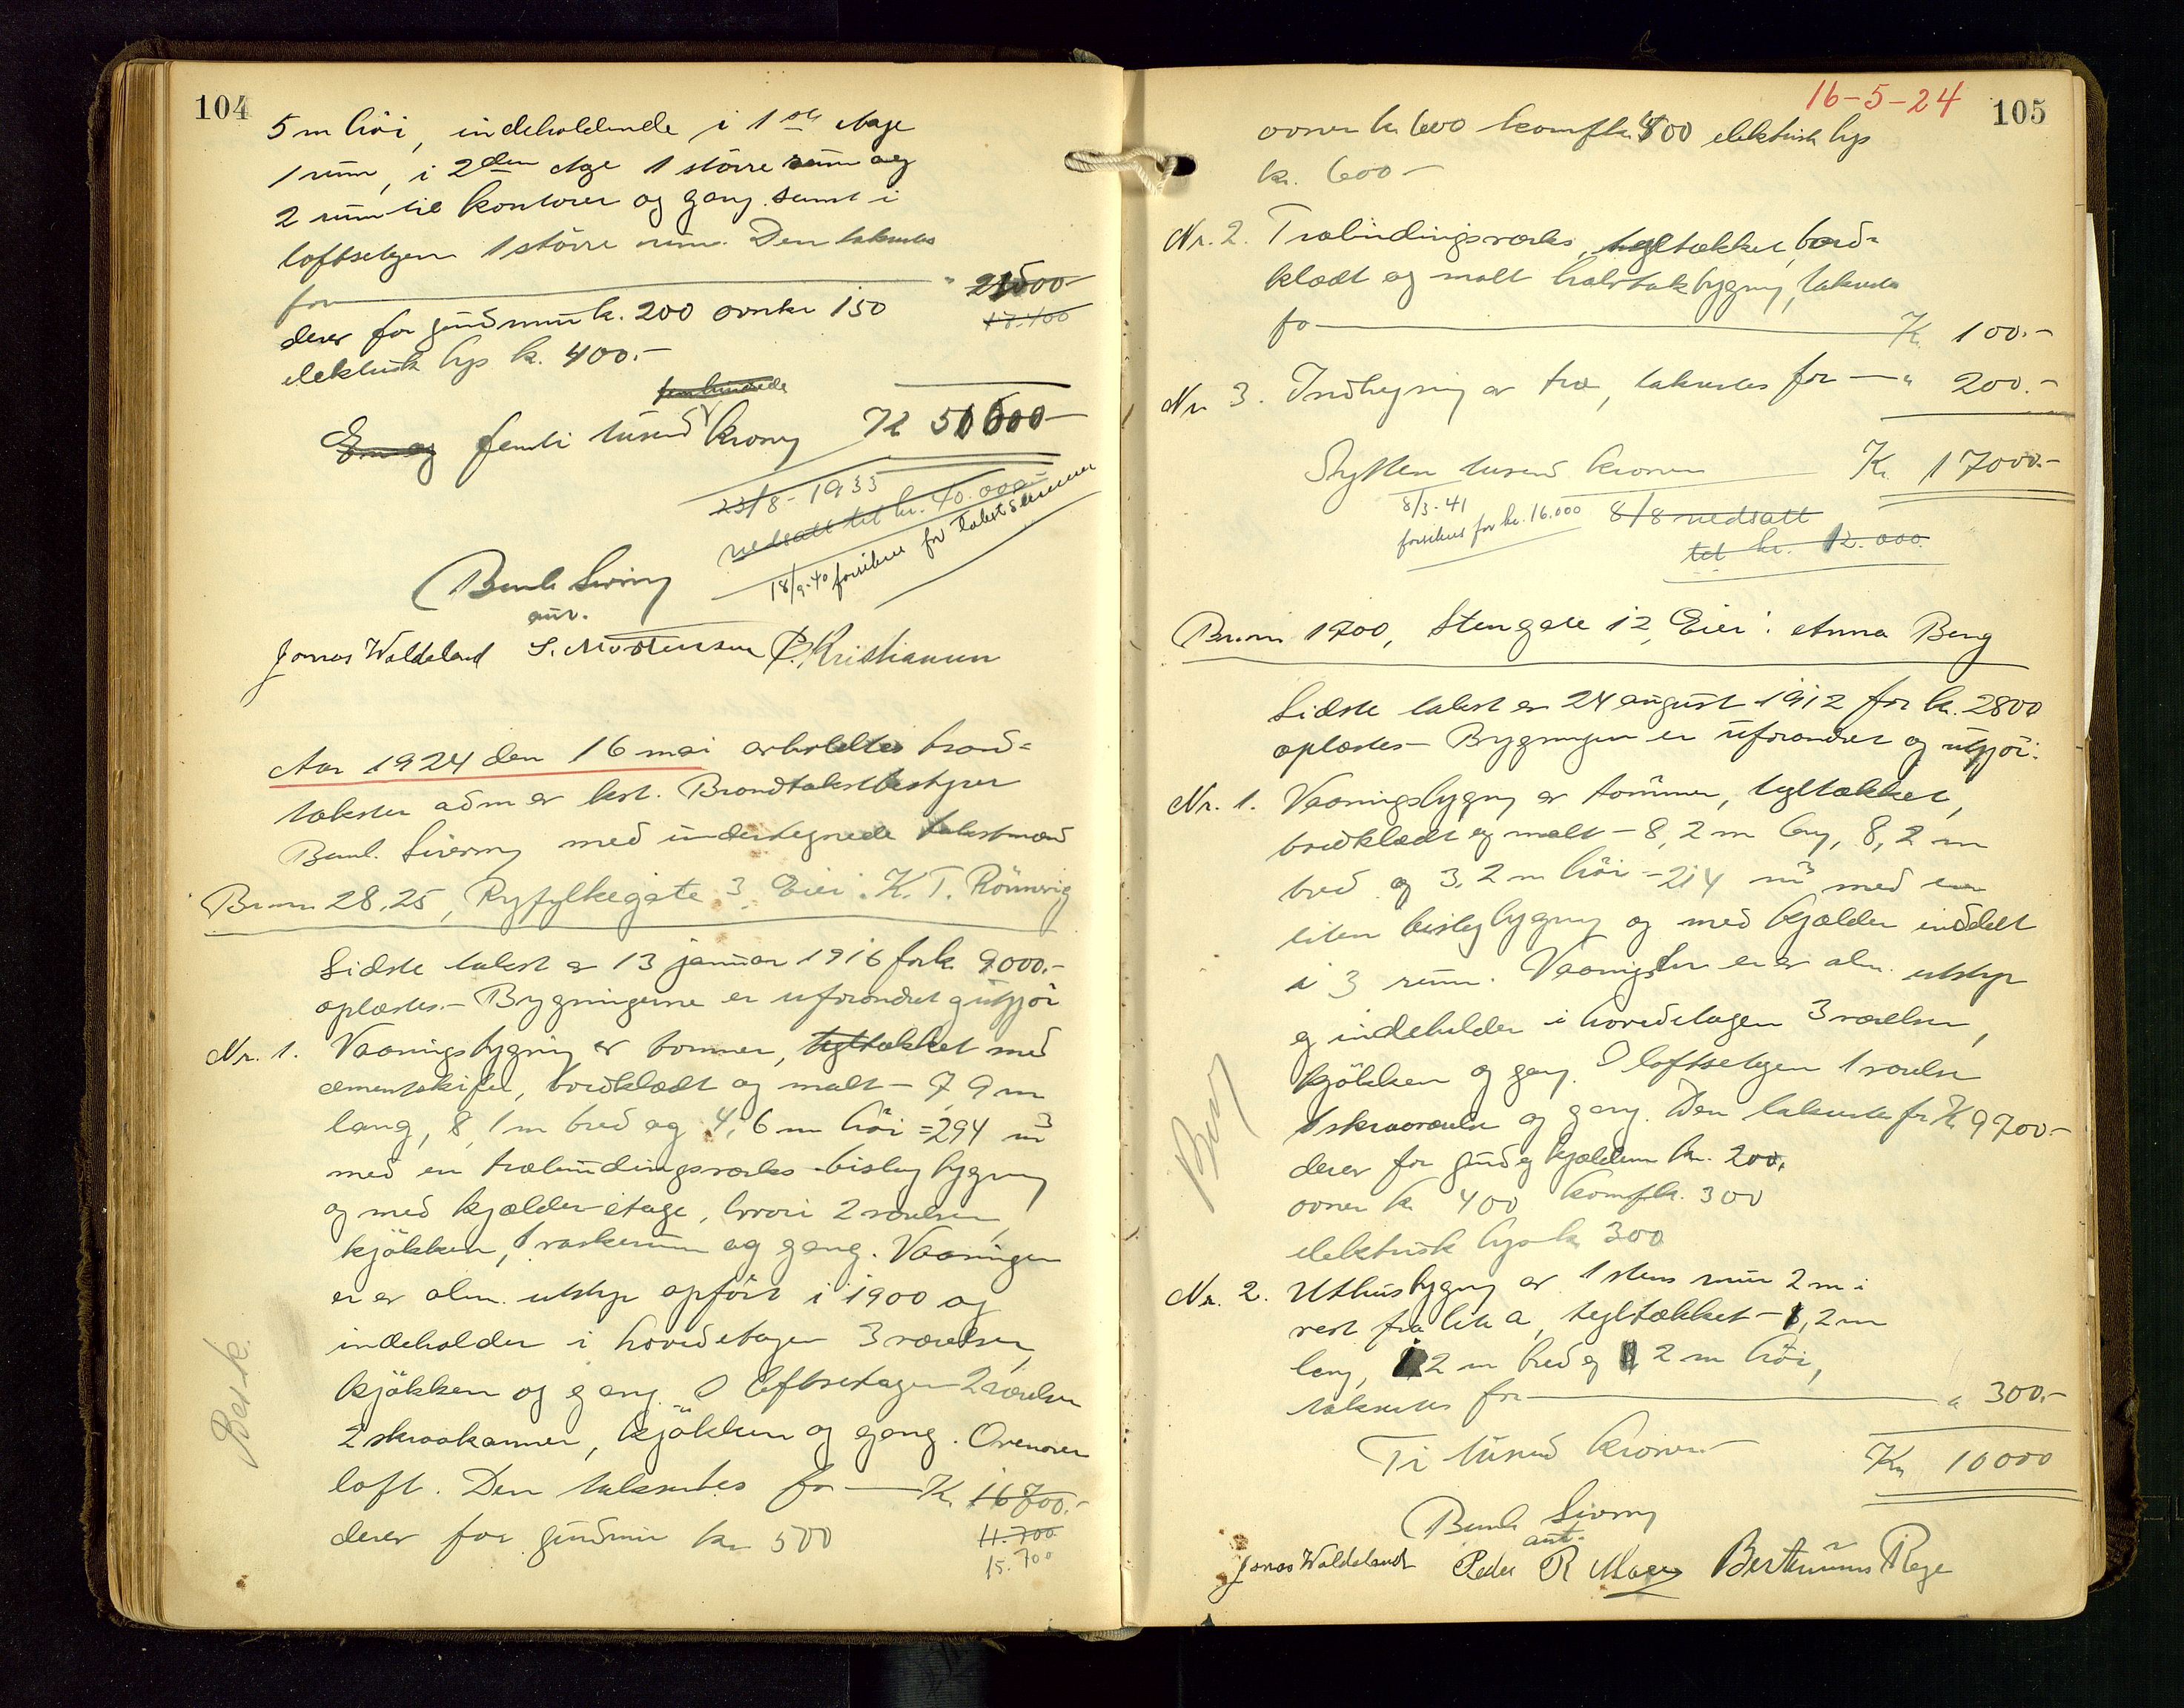 104
5 m höi, indeholdende i 1ste etage
1 rum, i 2den etge 1 större rum og
2 rum til kontorer og gang samt i
loftsetgen 1 större rum. Den takseres
for " 21500-
18.400
derav for grundmur k. 200 ovn kr 150
elektrisk lys k. 400.-
femhundrede
En og femti tusend kroner Kr 51600-
23/8-1933
nedsatt til kr. 40.000
18/9-40 forsikres for takstsummen
Bernh. Sivertsen
aut.
Jonas Waldeland S. Mortensen P. Kristiansen
Aar 1924 den 16 mai avholdtes brand-
takster adm av kst. Brandtakstbestyrer
Bernh. Sivertsen med undertegnede takstmænd
Br.nr. 28,25, Ryfylkegate 3. Eier: K. T. Rönnevig
Sidste takst av 13 januar 1916 for k. 9000.-
oplæstes.- Bygningerne er uforandret og utgjör
Nr. 1. Vaaningsbygning av tømmer, tegltækket med
cementskifer, bordklædt og malt - 7,9 m
lang, 8,1 m bred og 4,6 m höi = 294 m3
med en træbindingsverks bislagbygning
og med kjælder etage, hvori 2 værelser,
kjökken, 1 vaskerum og gang. Vaaningen
er av alm. utstyr opfört i 1900 og
indeholder i hovedetagen 3 værelser,
kjökken og gang. I loftsetagen 2 værelser
2 skraakammer, kjökken og gang. Ovenover
loft. Den takseres for Kr. 16700.-
derav for grundmur kr 500 11.700
15.700
Besk.
16-5-24
105
ovner kr 600 komfkr. 400 elektrisk lys
kr. 600-
Nr. 2. Træbindingsverks, tegltækket, bord-
klædt og malt halvtakbygning, takseres
for Kr. 100.-
Nr. 3. Indhegning av træ, takseres for " 200.-
Sytten tusend kroner Kr. 17000.-
8/3-41
forsikres for kr. 16.000 8/8 nedsatt
til kr. 12.000
Br.nr. 1700, Stengate 12, Eier: Anna Berg
Sidste takst av 24 august 1912 for kr. 2800
oplæstes- Bygningen er uforandret og utgjör:
Nr. 1. Vaaningsbygning av tömmer, tegltækket,
bordklædt og malt - 8,2 m lang, 8,2 m
bred og 3,2 m höi - 214 m3 med en
liten bislagbygning og med kjælder inddelt
i 3 rum. Vaaningen er av alm. utstyr
og indeholder i hovedetagen 3 værelser,
kjökken og gang. I loftsetagen 1 værelse
1 skraaværelse og gang. Den takseres for Kr. 9700.-
derav for grund og kjælderm kr. 200,
ovner kr 400 komfkr. 300
elektrisk lys kr 300
Nr. 2. Uthusbygning av 1 stens mur 2 m i
vest fra lit a, tegltækket - 1,2 m
lang, 1,2 m bred og 2 m höi,
takseres for " 300.-
Ti tusend kroner Kr 10000
Berg
Bernh. Sivertsen
aut.
Jonas Waldeland Peder R Maeen Bertinius Rege